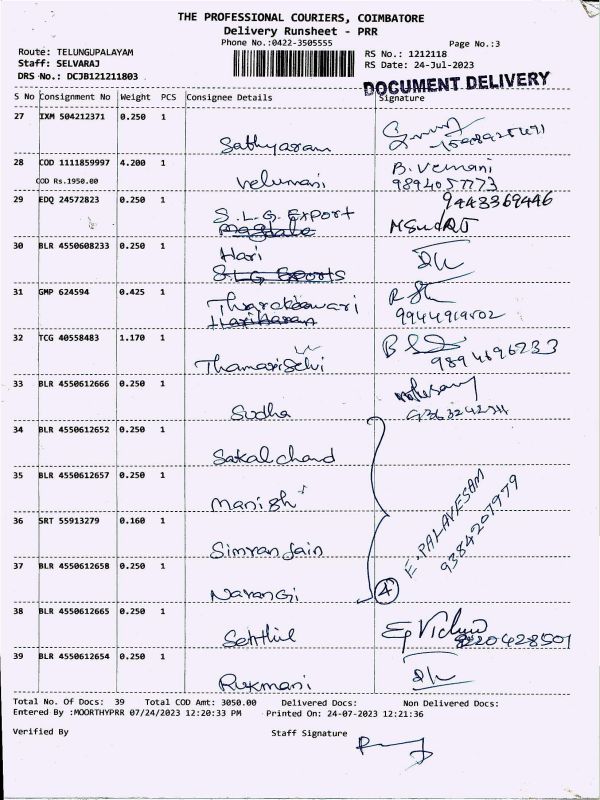 THE PROFESSIONAL COURIERS, COIMBATORE
Delivery Runsheet - PRR
Phone No.:0422-3505555
Page No.:3
Route: TELUNGUPALAYAM
RS No.: 1212118
Staff: SELVARAJ
RS Date: 24-Jul-2023
DRS No.: DCJB121211803
DOCUMENT DELIVERY
S No Consignment No Weight PCS Consignee Details Signature
27 IXM 504212371 0.250 1
Sathyaram
28 COD 1111859997 4.200 1
B. Vemani
COD Rs.1950.00
velumani 9894057773
29 EDQ 24572823 0.250 1
9443369446
S.L.G. Export
30 BLR 4550608233 0.250 1
Hari
S.L.G Exports
31 GMP 624594 0.425 1
Hariharan
32 TCG 40558483 1.170 1
Thamariselvi 9894696233
33 BLR 4550612666 0.250 1
Sudha
34 BLR 4550612652 0.250 1
Sakalchand
35 BLR 4550612657 0.250 1
Manish
E. PALAVESAM
9384207979
36 SRT 55913279 0.160 1
Simran Jain
37 BLR 4550612658 0.250 1
Narangi
4
38 BLR 4550612665 0.250 1
Senthil
39 BLR 4550612654 0.250 1
Rukmani
Total No. Of Docs: 39 Total COD Amt: 3050.00 Delivered Docs: Non Delivered Docs:
Entered By :MOORTHYPRR 07/24/2023 12:20:33 PM Printed On: 24-07-2023 12:21:36
Verified By Staff Signature